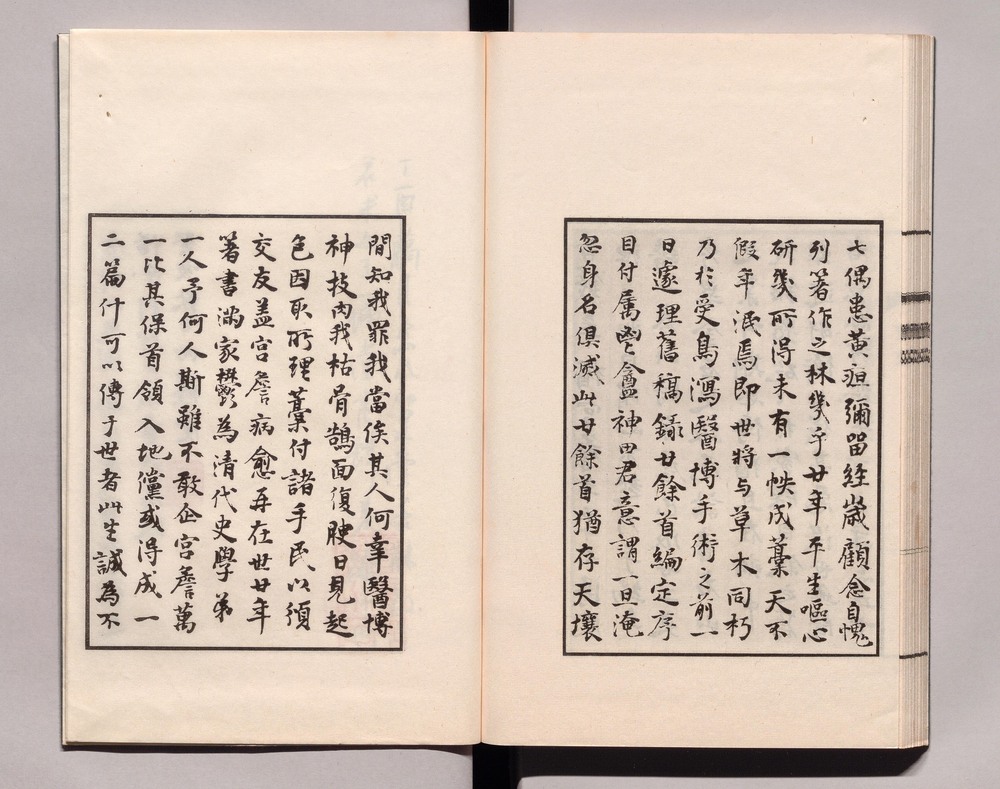 七偶患黃疸彌留経歲顧念自愧
列著作之林幾乎廿年平生嘔心
研幾所得未有一帙成藁天不
假年泯焉即世將与草木同朽
乃於受烏瀉醫博手術之前一
日遽理舊稿錄廿餘首編定序
目付属鬯盦神田君意謂一旦淹
忽身名俱滅此廿餘首猶存天壤
間知我罪我當俟其人何幸醫博
神技肉我枯骨鵠面復腴日見起
色因取所理藁付諸手民以頒
交友蓋宮詹病愈再在世廿年
著書滿家鬱為清代史學弟
一人予何人斯雖不敢企宮詹萬
一比其保首領入地儻或得成一
二篇什可以傳于世者此生誠為不